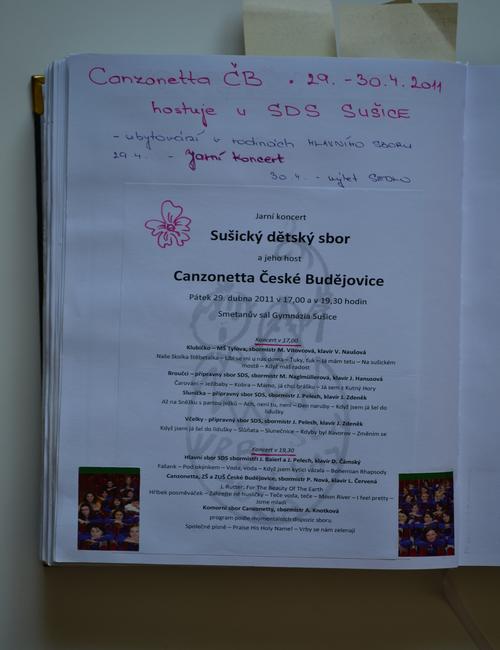 Canzonetta ČB • 29. - 30.4. 2011
hostuje u SDS SUŠICE
- ubytování v rodinách HLAVNÍHO SBORU
29.4. - Jarní koncert
30.4. - výlet SEDLO
Jarní koncert
Sušický dětský sbor
a jeho host
Canzonetta České Budějovice
Pátek 29. dubna 2011 v 17,00 a v 19,30 hodin
Smetanův sál Gymnázia Sušice
Koncert v 17,00
Klubíčko – MŠ Tylova, sbormistr M. Vítovcová, klavír V. Naušová
Naše školka štěbetalka – Líbí se mi u nás doma – Ťuky, ťuk – Já mám tetu – Na sušickém
mostě – Když máš radost
Broučci – přípravný sbor SDS, sbormistr M. Naglmüllerová, klavír J. Hansová
Čarování – Ježibaby – Kobra – Mámo, já chci brášku – Já sem z Kutný Hory
Sluníčka – přípravný sbor SDS, sbormistr J. Pelech, klavír J. Zdeněk
Až na Sněžku s partou ježků – Ach, není tu, není – Den naruby – Když jsem já šel do
lidušky
Včelky - přípravný sbor SDS, sbormistr J. Pelech, klavír J. Zdeněk
Když jsem já šel do lidušky – Šlůňata – Slunečnice – Kdyby byl Bavorov – Zmněním se
Koncert v 19,30
Hlavní sbor SDS sbormistři J. Baierl a J. Pelech, klavír D. Čámský
Fašank – Pod okýnkem – Voda, voda – Když jsem kytici vázala – Bohemian Rhapsody
Canzonetta, ZŠ a ZUŠ České Budějovice, sbormistr P. Nová, klavír L. Červená
J. Rutter: For The Beauty Of The Earth
Hříbek posměváček – Zahrajte mi husličky – Teče voda, teče – Moon River – I feel pretty –
Jsme mladí
Komorní sbor Canzonetty, sbormistr A. Knotková
program podle momentálních dispozic sboru
Společné písně – Praise His Holy Name! – Vrby se nám zelenají